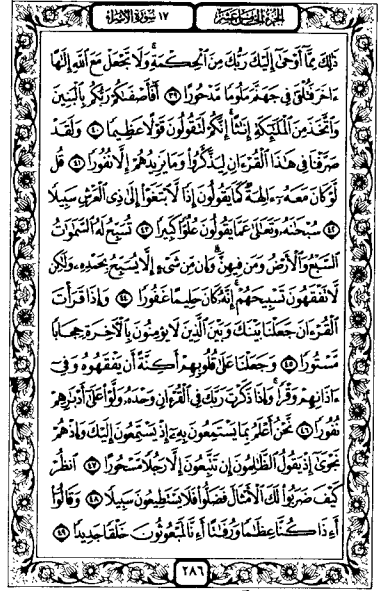 الجزء الخامس عشر
١٧ سورة الإسراء
ذَٰلِكَ مِمَّا أَوْحَىٰ إِلَيْكَ رَبُّكَ مِنَ الْحِكْمَةِ ۗ وَلَا تَجْعَلْ مَعَ اللَّهِ إِلَٰهًا
ءَاخَرَ فَتُلْقَىٰ فِي جَهَنَّمَ مَلُومًا مَّدْحُورًا ٣٩ أَفَأَصْفَىٰكُمْ رَبُّكُم بِالْبَنِينَ
وَاتَّخَذَ مِنَ الْمَلَٰٓئِكَةِ إِنَٰثًا ۚ إِنَّكُمْ لَتَقُولُونَ قَوْلًا عَظِيمًا ٤٠ وَلَقَدْ
صَرَّفْنَا فِي هَٰذَا الْقُرْءَانِ لِيَذَّكَّرُوا وَمَا يَزِيدُهُمْ إِلَّا نُفُورًا ٤١ قُل
لَّوْ كَانَ مَعَهُۥٓ ءَالِهَةٌ كَمَا يَقُولُونَ إِذًا لَّابْتَغَوْا إِلَىٰ ذِي الْعَرْشِ سَبِيلًا
٤٢ سُبْحَٰنَهُۥ وَتَعَٰلَىٰ عَمَّا يَقُولُونَ عُلُوًّا كَبِيرًا ٤٣ تُسَبِّحُ لَهُ السَّمَٰوَٰتُ
السَّبْعُ وَالْأَرْضُ وَمَن فِيهِنَّ ۚ وَإِن مِّن شَيْءٍ إِلَّا يُسَبِّحُ بِحَمْدِهِۦ وَلَٰكِن
لَّا تَفْقَهُونَ تَسْبِيحَهُمْ ۗ إِنَّهُۥ كَانَ حَلِيمًا غَفُورًا ٤٤ وَإِذَا قَرَأْتَ
الْقُرْءَانَ جَعَلْنَا بَيْنَكَ وَبَيْنَ الَّذِينَ لَا يُؤْمِنُونَ بِالْءَاخِرَةِ حِجَابًا
مَّسْتُورًا ٤٥ وَجَعَلْنَا عَلَىٰ قُلُوبِهِمْ أَكِنَّةً أَن يَفْقَهُوهُ وَفِي
ءَاذَانِهِمْ وَقْرًا ۚ وَإِذَا ذَكَرْتَ رَبَّكَ فِي الْقُرْءَانِ وَحْدَهُۥ وَلَّوْا عَلَىٰٓ أَدْبَٰرِهِمْ
نُفُورًا ٤٦ نَّحْنُ أَعْلَمُ بِمَا يَسْتَمِعُونَ بِهِۦٓ إِذْ يَسْتَمِعُونَ إِلَيْكَ وَإِذْ هُمْ
نَجْوَىٰٓ إِذْ يَقُولُ الظَّٰلِمُونَ إِن تَتَّبِعُونَ إِلَّا رَجُلًا مَّسْحُورًا ٤٧ انظُرْ
كَيْفَ ضَرَبُوا لَكَ الْأَمْثَالَ فَضَلُّوا فَلَا يَسْتَطِيعُونَ سَبِيلًا ٤٨ وَقَالُوٓا
أَءِذَا كُنَّا عِظَٰمًا وَرُفَٰتًا أَءِنَّا لَمَبْعُوثُونَ خَلْقًا جَدِيدًا ٤٩
٢٨٦